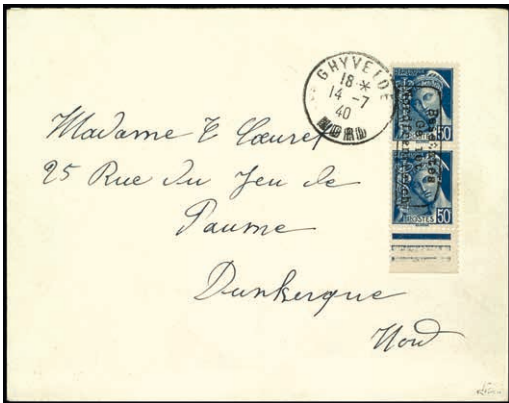 GHYVELDE
18 *
14 -7
40
NORD
50
POSTES 50
Madame T Cœuret
25 Rue du Jeu de
Paume
Dunkerque
Nord